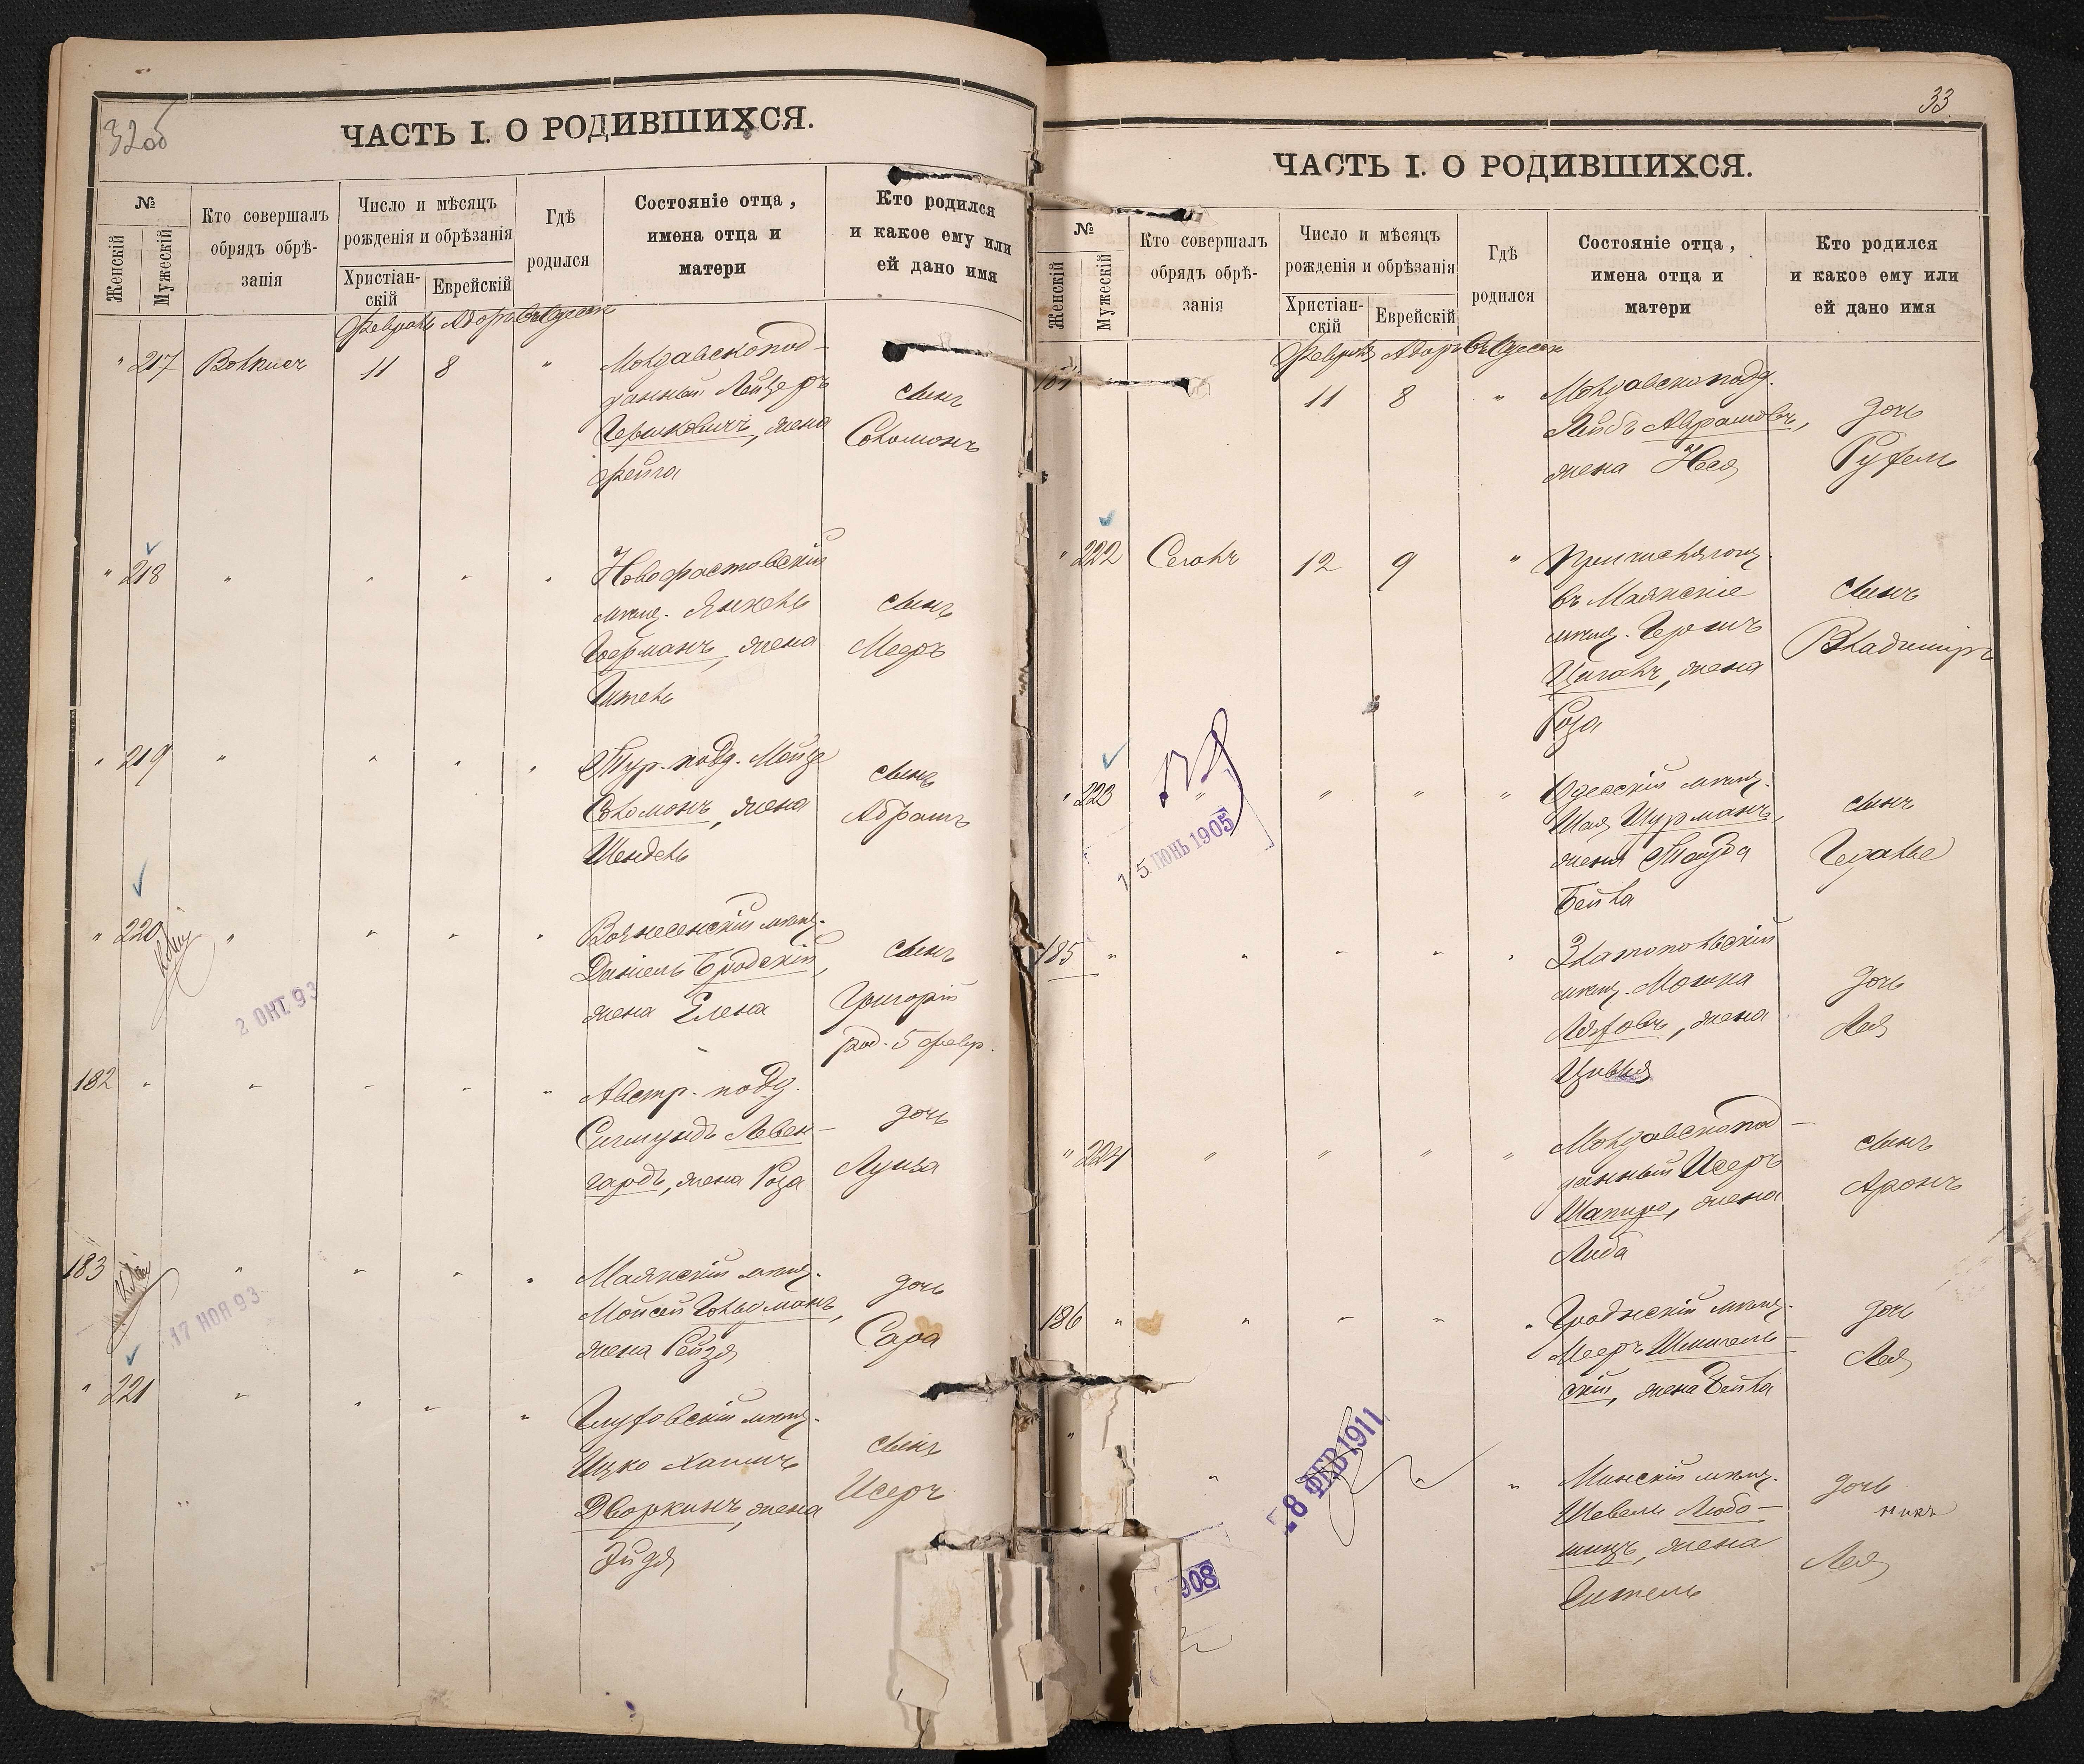 32об
ЧАСТЬ I. О РОДИВШИХСЯ.
№
Женскій
Мужескій
Кто совершалъ
обрядъ обрѣ-
занія
Число и мѣсяцъ
рожденія и обрѣзанія
Христіан-
скій
Еврейскій
Гдѣ
родился
Состояніе отца,
имена отца и
матери
Кто родился
и какое ему или
ей дано имя
Февраль Адоръ въ Одессѣ
" 217 11 8 " Молдавскопод-
данный Лейзеръ
Гершковичъ, жена
Фейга
сынъ
Соломонъ
" 218 " " " " Новофастовскій
мѣщ. Янкель
Гоерманъ, жена
Гитель
сынъ
Мееръ
" 219 " " " " Тур. подд. Мойзе
Соломонъ, жена
Шендель
сынъ
Абрамъ
" 220 " " " " Вознесенскій мѣщ.
Даніель Бродскій,
жена Елена
сынъ
Григорій
род. 5 февр.
2 ОКТ 93
182 " " " " " Австр. подд.
Сигмундъ Левен-
гардъ, жена Роза
дочь
Луиза
183 " " " " Маякскій мѣщ.
Мойсей Гольдманъ,
жена Рейзя
дочь
Сара
17 НОЯ 93
" 221 " " " " Глуховскій мѣщ.
Ицко Хаимъ
Дворкинъ, жена
Эйдя
сынъ
Исеръ
33
ЧАСТЬ I. О РОДИВШИХСЯ.
№
Женскій
Мужескій
Кто совершалъ
обрядъ обрѣ-
занія
Число и мѣсяцъ
рожденія и обрѣзанія
Христіан-
скій
Еврейскій
Гдѣ
родился
Состояніе отца,
имена отца и
матери
Кто родился
и какое ему или
ей дано имя
Февраль Адоръ въ Одессѣ
184 11 8 " Молдавскоподд.
Лейбъ Аврамовъ,
жена Нехя
дочь
Рухель
" 222 Сегалъ 12 9 " Причисляющ.
въ Маякскіе
мѣщ. Гершъ
Цигалъ, жена
Роза
сынъ
Владимиръ
" 223 " " " " Одесскій мѣщ.
Шая Шурманъ,
жена Тауба
Бейла
сынъ
Гедалье
15 ІЮНЬ 1905
185 " " " " " Златопольскій
мѣщ. Мошка
Ляховъ, жена
Цивья
дочь
Лея
" 224 " " " " Молдавскопод-
данный Исеръ
Шапиро, жена
Либа
сынъ
Аронъ
186 " " " " " Гродскій мѣщ.
Мееръ Шмигель-
скій, жена Бейла
дочь
Лея
" " " " Минскій мѣщ.
Шевель Любо-
шицъ, жена
Гитель
дочь
Лея
28 ФЕВ 1911
908